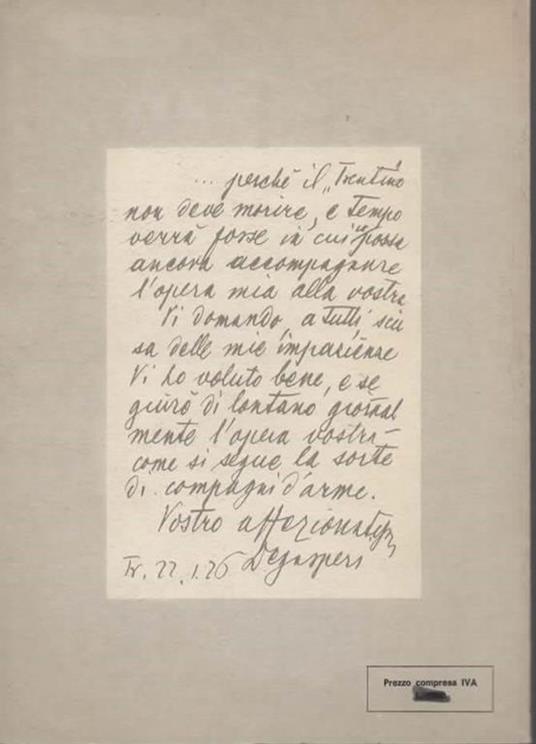 ... perché il „Trentino"
non deve morire, e tempo
verrà forse in cui possa
ancora accompagnare
l'opera mia alla vostra
Vi domando, a tutti, scu
sa delle mie impazienze
Vi ho voluto bene, e se
guirò di lontano giornal
mente l'opera vostra -
come si segue la sorte
di compagni d'arme.
Vostro
Degasperi
Tr. 22.1.26
Prezzo compresa IVA